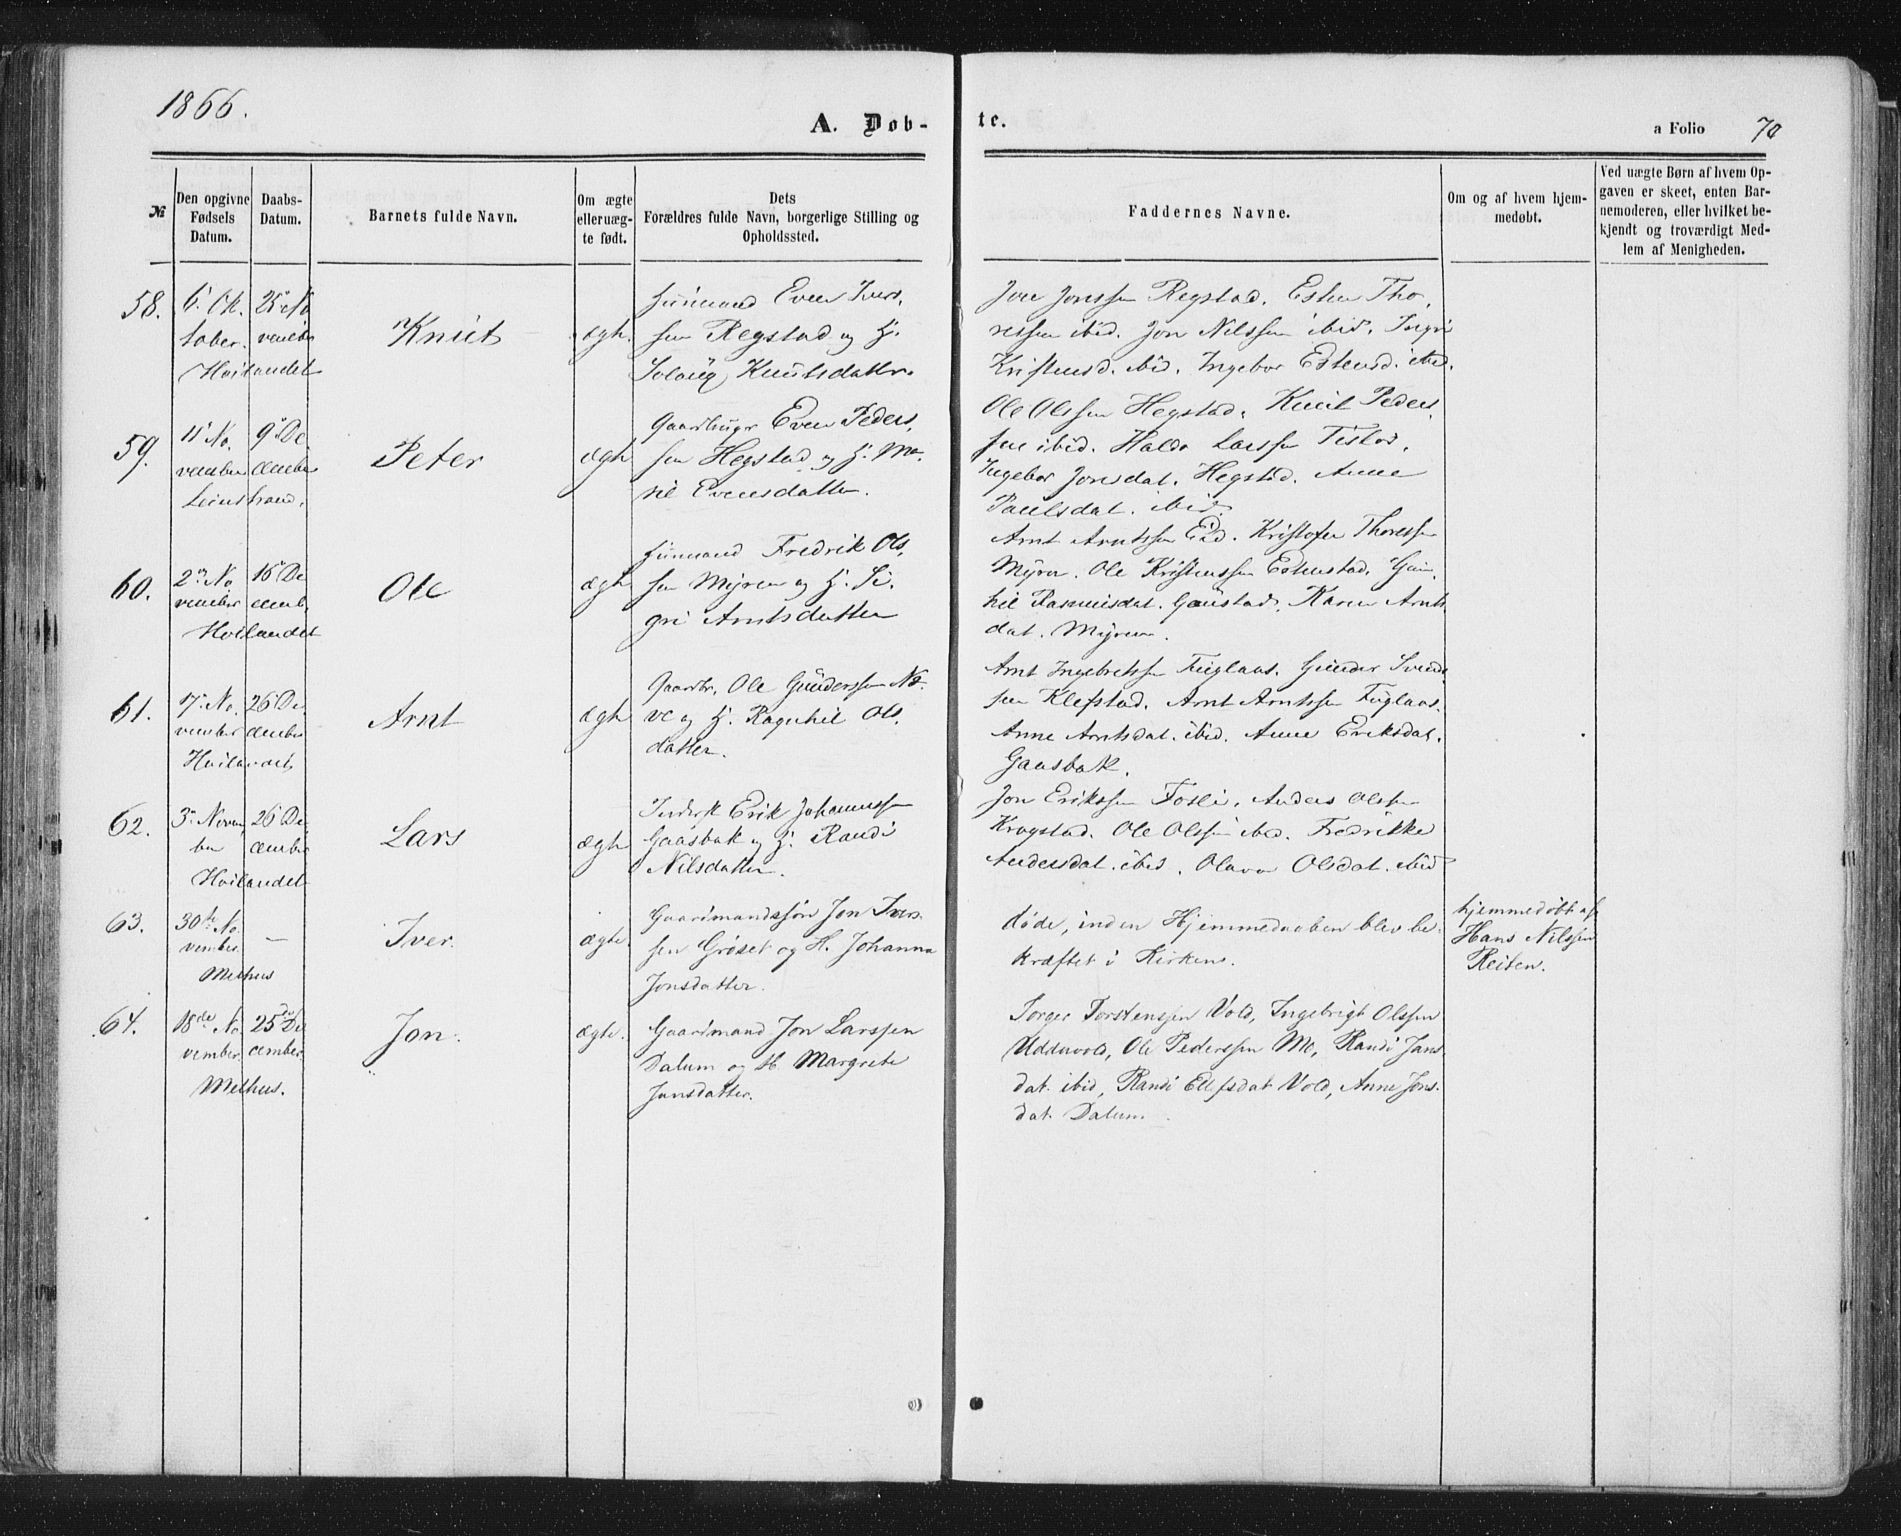 1866.
A. Døb-
te.
a Folio 70
№
Den opgivne Fødsels Datum.
Daabs-Datum.
Barnets fulde Navn.
Om ægte eller uæg-te født.
Dets
Forældres fulde Navn, borgerlige Stilling og
Opholdssted.
Faddernes Navne.
Om og af hvem hjem-
medøbt.
Ved uægte Børn af hvem Op-
gaven er skeet, enten Bar-
nemoderen, eller hvilket be-
kjendt og troværdigt Med-
lem af Menigheden.
58.
6. Ok
tober.
Høilandet
25 No
vember
Knut
ægh.
Even Ivers.
sen Regstad og H.
Solaug Knutsdatter.
Jon Jonssen Regstad. Esten Tho,
ressen ibid. Jon Nilssen ibid. Ingri
Kristensd. ibid. Ingebor Estensd. ibid.
59.
11 No.
vember
Leinstrand.
9 De
cember
Peter
ægh
Gaardbruger Even Peders,
sen Hegstad og H. Ma.
rit Evensdatter.
Ole Olssen Hegstad. Knut Peders,
sen ibid. Haldo Larssen
Ingebor Jonsdat. Hegstad. Anne
Paulsdat. ibid.
60.
2 No
vember
Høilandet
16 De
cemb.
Ole
ægh
Fredrik Ols,
sen Myren og H. Si,
gri Arntsdatter
Arnt Arntssen Eid. Kristofer Thoressen
Myren. Ole Kristenssen Estenstad. Gun,
hil Rasmusdat. Gaustad. Karen Arnts
dat. Myren.
61.
7 No.
vember
Høilandet
26 De
cember
Arnt
ægh
Gaardbr. Ole Gunderssen
og H. Ragnhil Ols.
datter.
Arnt Ingebretssen Fuglaas. Gunder Svends
sen Klefstad. Arnt Arntssen Fuglaas.
Anne Arntsdat. ibid. Anne Eriksdat.
Gaasbak.
62.
3 Novem
ber
Høilandet
26 De
cember
Lars
ægh
Inderst Erik Johannessen
Gaasbak og H. Randi
Nilsdatter.
Jon Erikssen Fosli. Anders Olssen
Krogstad. Ole Olssen ibid. Fredrikke
Andersdat. ibid. Olava Olsdat. ibid
63.
30te No.
vember.
Melhus
—
Iver.
ægte.
Gaardmandssøn Jon Ivers
sen Grøset og H. Johanna
Jonsdatter.
døde, inden Hjemmedaaben blev be.
kræftet i Kirken.
hjemmedøbt af
Hans Nilssen
Reiten.
64.
18de No
vember.
Melhus.
25de De
cember.
Jon.
ægte.
Gaardmand Jon Larssen
Dalum og H. Margrete
Jonsdatter.
Torger Torstenssen Vold, Ingebrigt Olssen
Uddavold, Ole Pederssen Mo, Randi Jons
dat ibid, Randi Ellefsdat Vold, Anne Jons.
dat. Dalum.